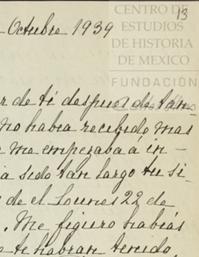 13
CENTRO DE
ESTUDIOS
DE HISTORIA
DE MEXICO
FUNDACIÓN
Octubre 1939
r de ti despues de tan-
no habia recibido mas
e me empezaba a in-
a sido tan largo tu si-
de el Lounes 22 de
. Me figuro habias
te habran tenido